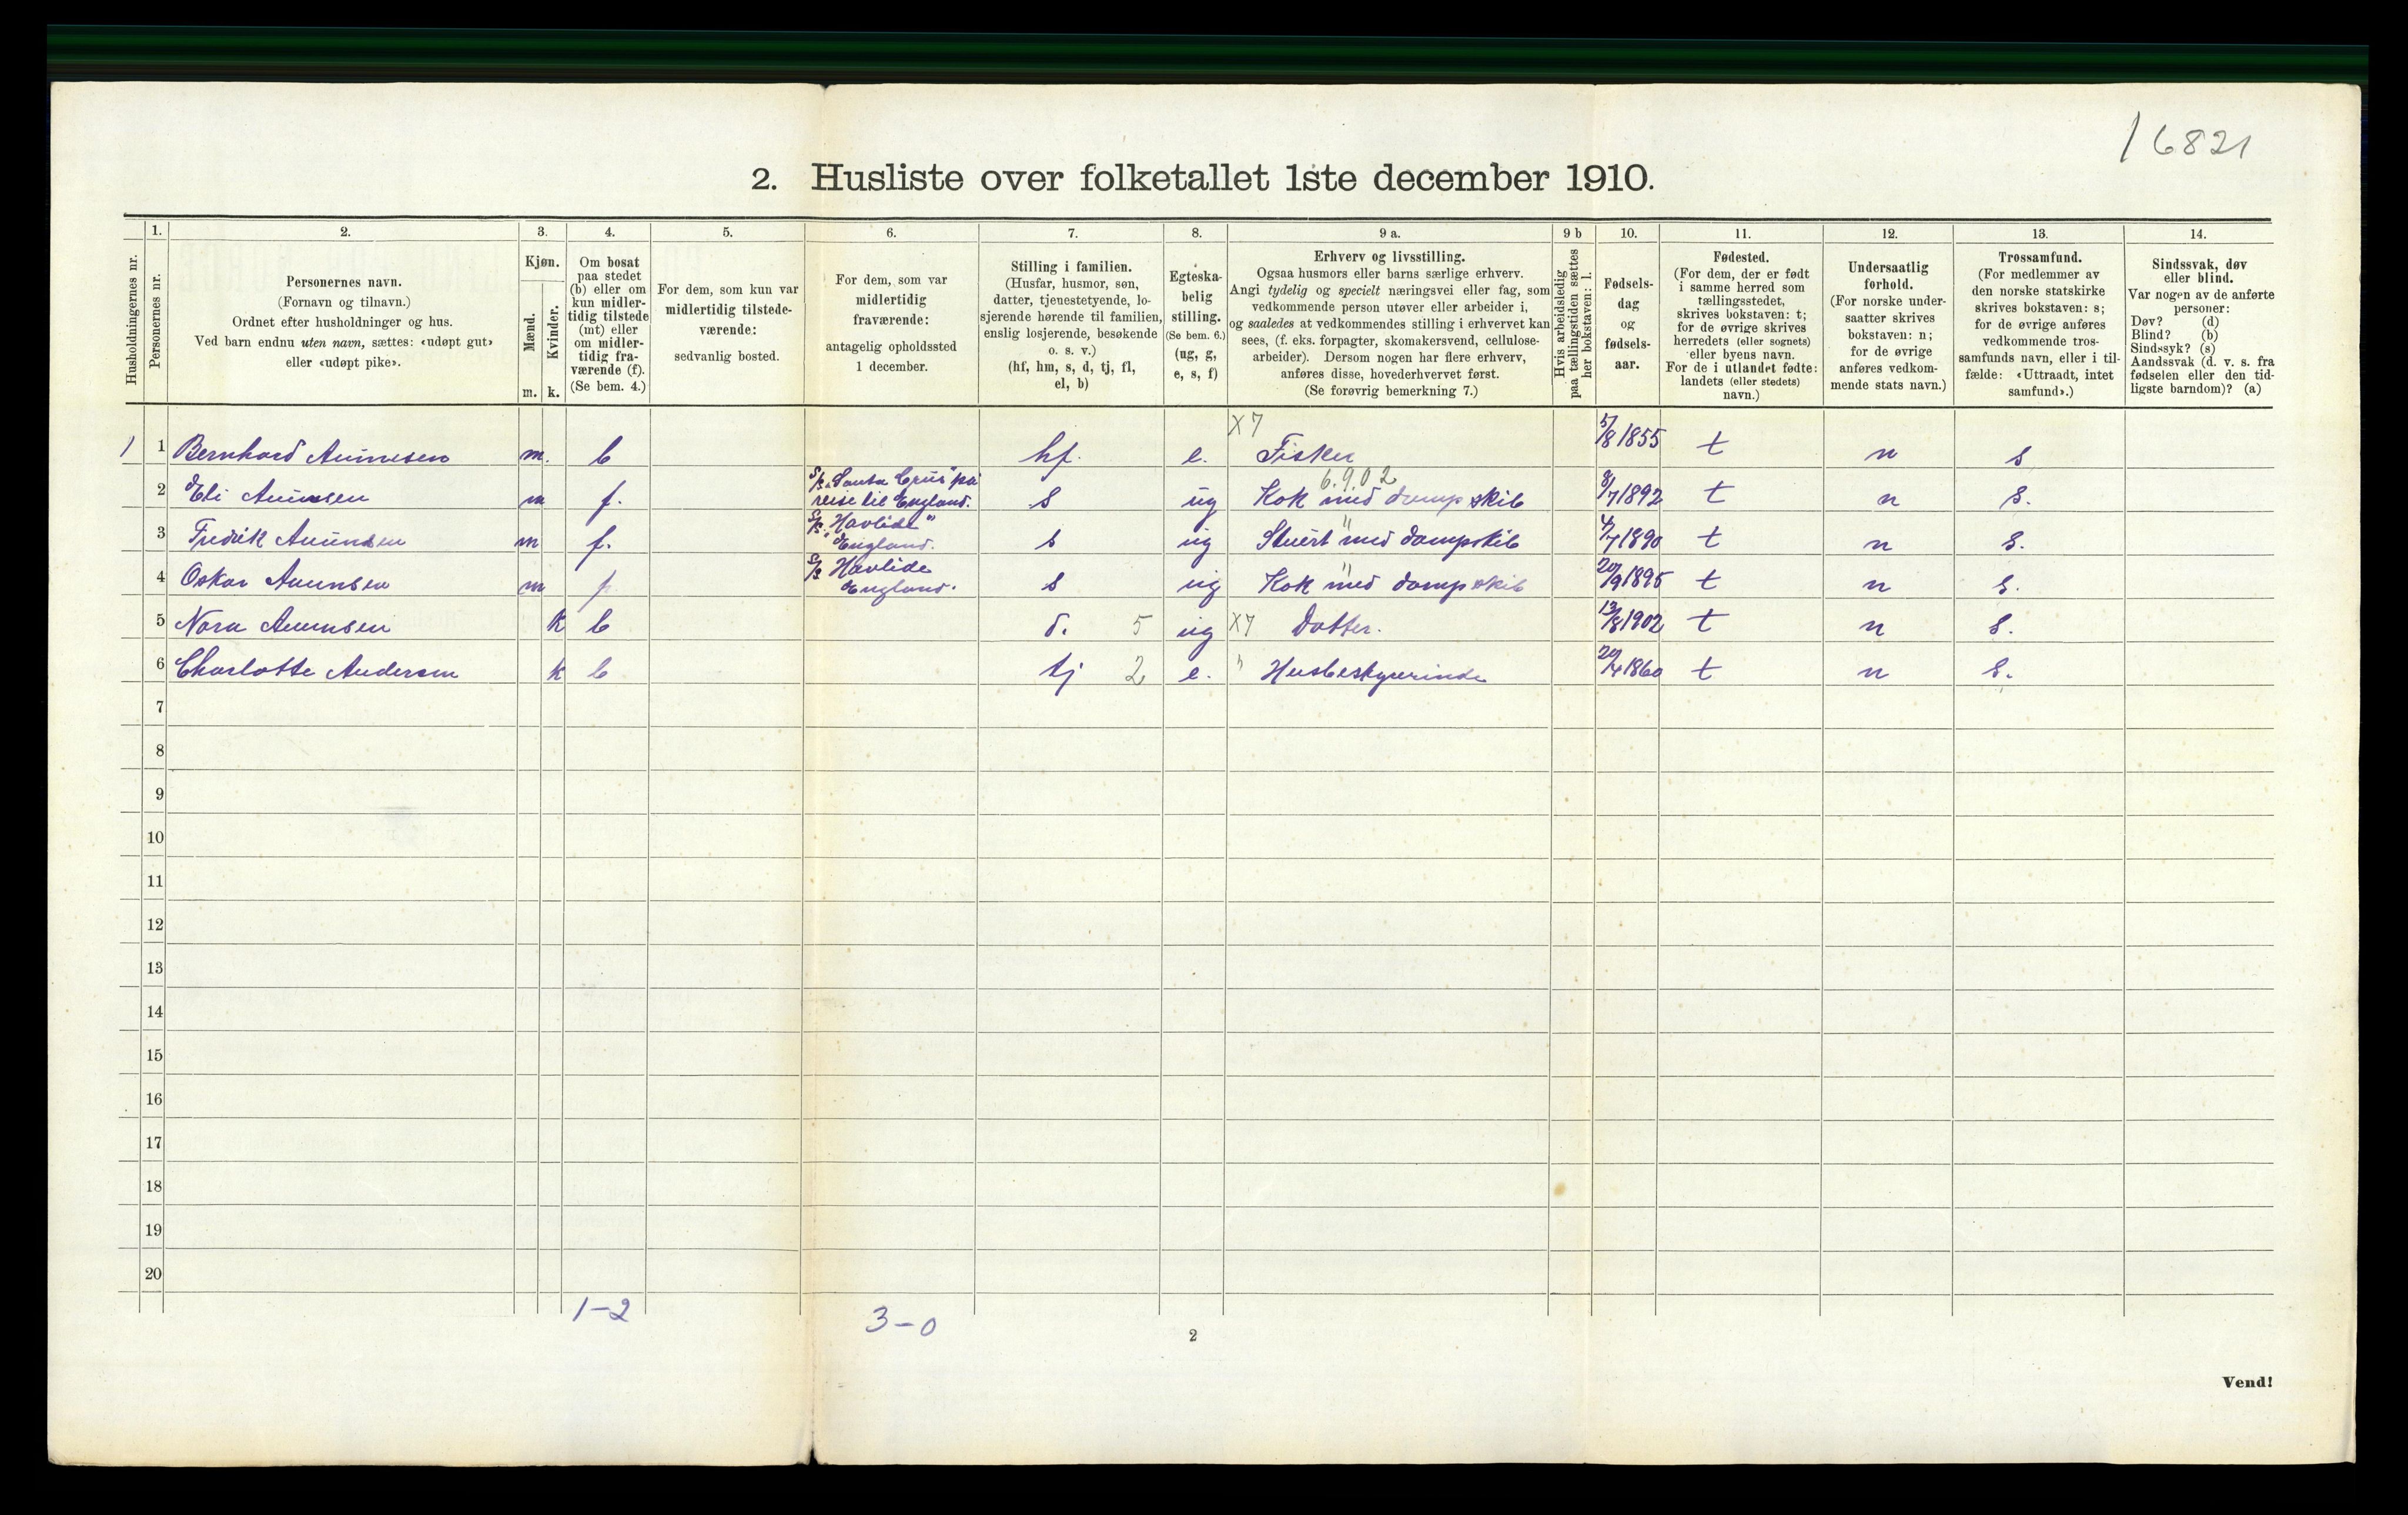 16821
2. Husliste over folketallet 1ste december 1910.
Husholdningernes nr.
1.
Personernes nr.
2.
Personernes navn.
(Fornavn og tilnavn.)
Ordnet efter husholdninger og hus.
Ved barn endnu uten navn, sættes: «udøpt gut»
eller «udøpt pike».
3.
Kjøn.
Mænd.
Kvinder.
m. k.
4.
Om bosat
paa stedet
(b) eller om
kun midler-
tidig tilstede
(mt) eller
om midler-
tidig fra-
værende (f).
(Se bem. 4.)
5.
For dem, som kun var
midlertidig tilstede-
værende:
sedvanlig bosted.
6.
For dem, som var
midlertidig
fraværende:
antagelig opholdssted
1 december.
7.
Stilling i familien.
(Husfar, husmor, søn,
datter, tjenestetyende, lo-
sjerende hørende til familien,
enslig losjerende, besøkende
o. s. v.)
(hf, hm, s, d, tj, fl,
el, b)
8.
Egteska-
belig
stilling.
(Se bem. 6.)
(ug, g,
e, s, f)
9 a.
Erhverv og livsstilling.
Ogsaa husmors eller barns særlige erhverv.
Angi tydelig og specielt næringsvei eller fag, som
vedkommende person utøver eller arbeider i,
og saaledes at vedkommendes stilling i erhvervet kan
sees, (f. eks. forpagter, skomakersvend, cellulose-
arbeider). Dersom nogen har flere erhverv,
anføres disse, hovederhvervet først.
(Se forøvrig bemerkning 7.)
9 b
Hvis arbeidsledig
paa tællingstiden sættes
her bokstaven: l.
10.
Fødsels-
dag
og
fødsels-
aar.
11.
Fødested.
(For dem, der er født
i samme herred som
tællingsstedet,
skrives bokstaven: t;
for de øvrige skrives
herredets (eller sognets)
eller byens navn.
For de i utlandet fødte:
landets (eller stedets)
navn.)
12.
Undersaatlig
forhold.
(For norske under-
saatter skrives
bokstaven: n;
for de øvrige
anføres vedkom-
mende stats navn.)
13.
Trossamfund.
(For medlemmer av
den norske statskirke
skrives bokstaven: s;
for de øvrige anføres
vedkommende tros-
samfunds navn, eller i til-
fælde: «Uttraadt, intet
samfund».)
14.
Sindssvak, døv
eller blind.
Var nogen av de anførte
personer:
Døv? (d)
Blind? (b)
Sindssyk? (s)
Aandssvak (d. v. s. fra
fødselen eller den tid-
ligste barndom)? (a)
X7
1 1 Bernhard Aunnsen m. b hf. e. Fisker 5/8 1855 t n s
6.9.02
2 Eli Aunnsen m f. S/S "Santa Crus" på reise til England. s ug Kok med dampskib 8/7 1892 t n s.
3 Fredrik Aunnsen m f. S/S "Havlide" England. s ug " Stuert med dampskib 4/7 1890 t n s.
4 Oskar Aunnsen m f S/S Havlide England. s ug " Kok med dampskib 20/9 1895 t n s.
5 Nora Aunnsen k b d. 5 ug X7 Datter. 13/8 1902 t n s.
6 Charlotte Andersen k b tj 2 e. " Husbestyrerinde 20/4 1860 t n s.
7
8
9
10
11
12
13
14
15
16
17
18
19
20
1-2 3-0
2
Vend!